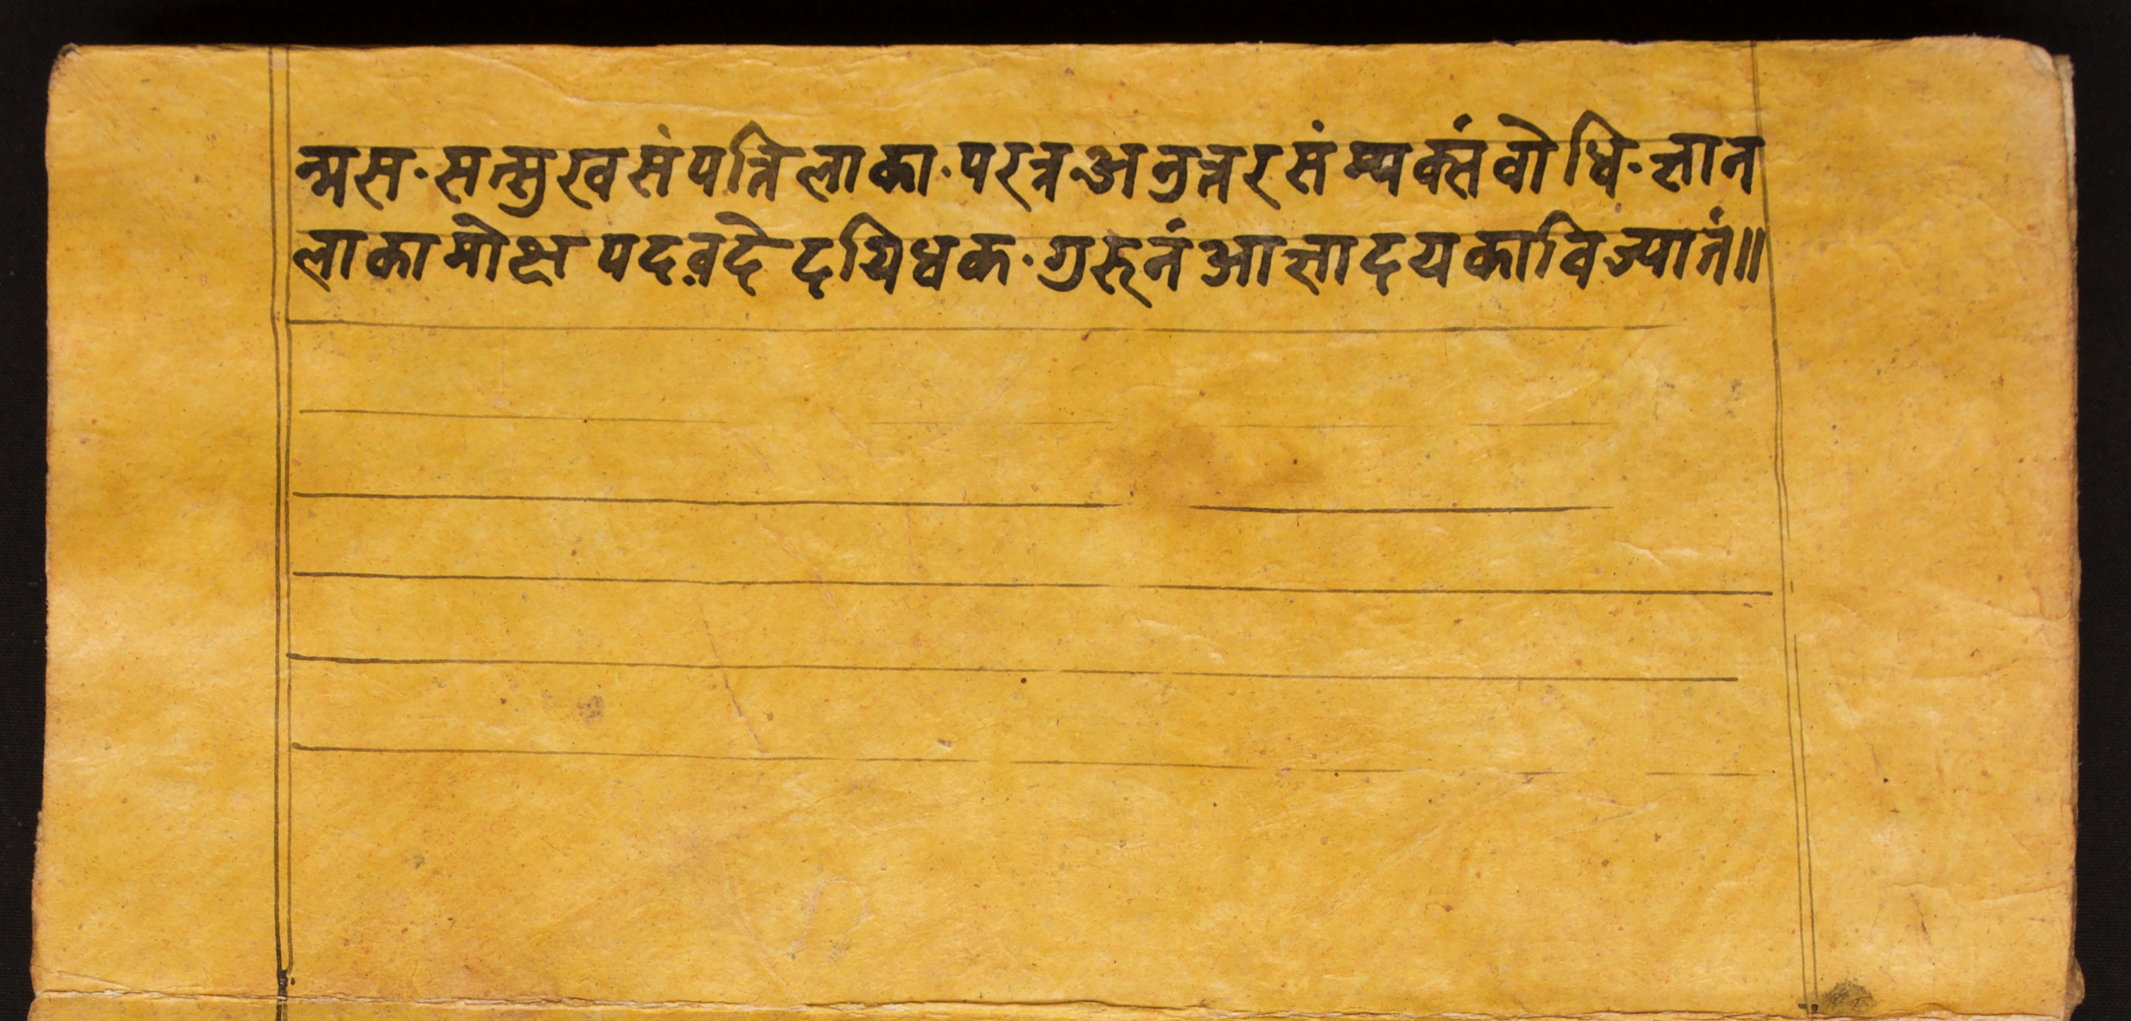 न्मस · सत्सुख संपत्ति लाका · परत्र · अनुत्तर संम्यक्संवोधि · ज्ञान
लाका मोक्ष पद व़दे दयिधक · गुरूनं आज्ञा दयका विज्यातं ॥